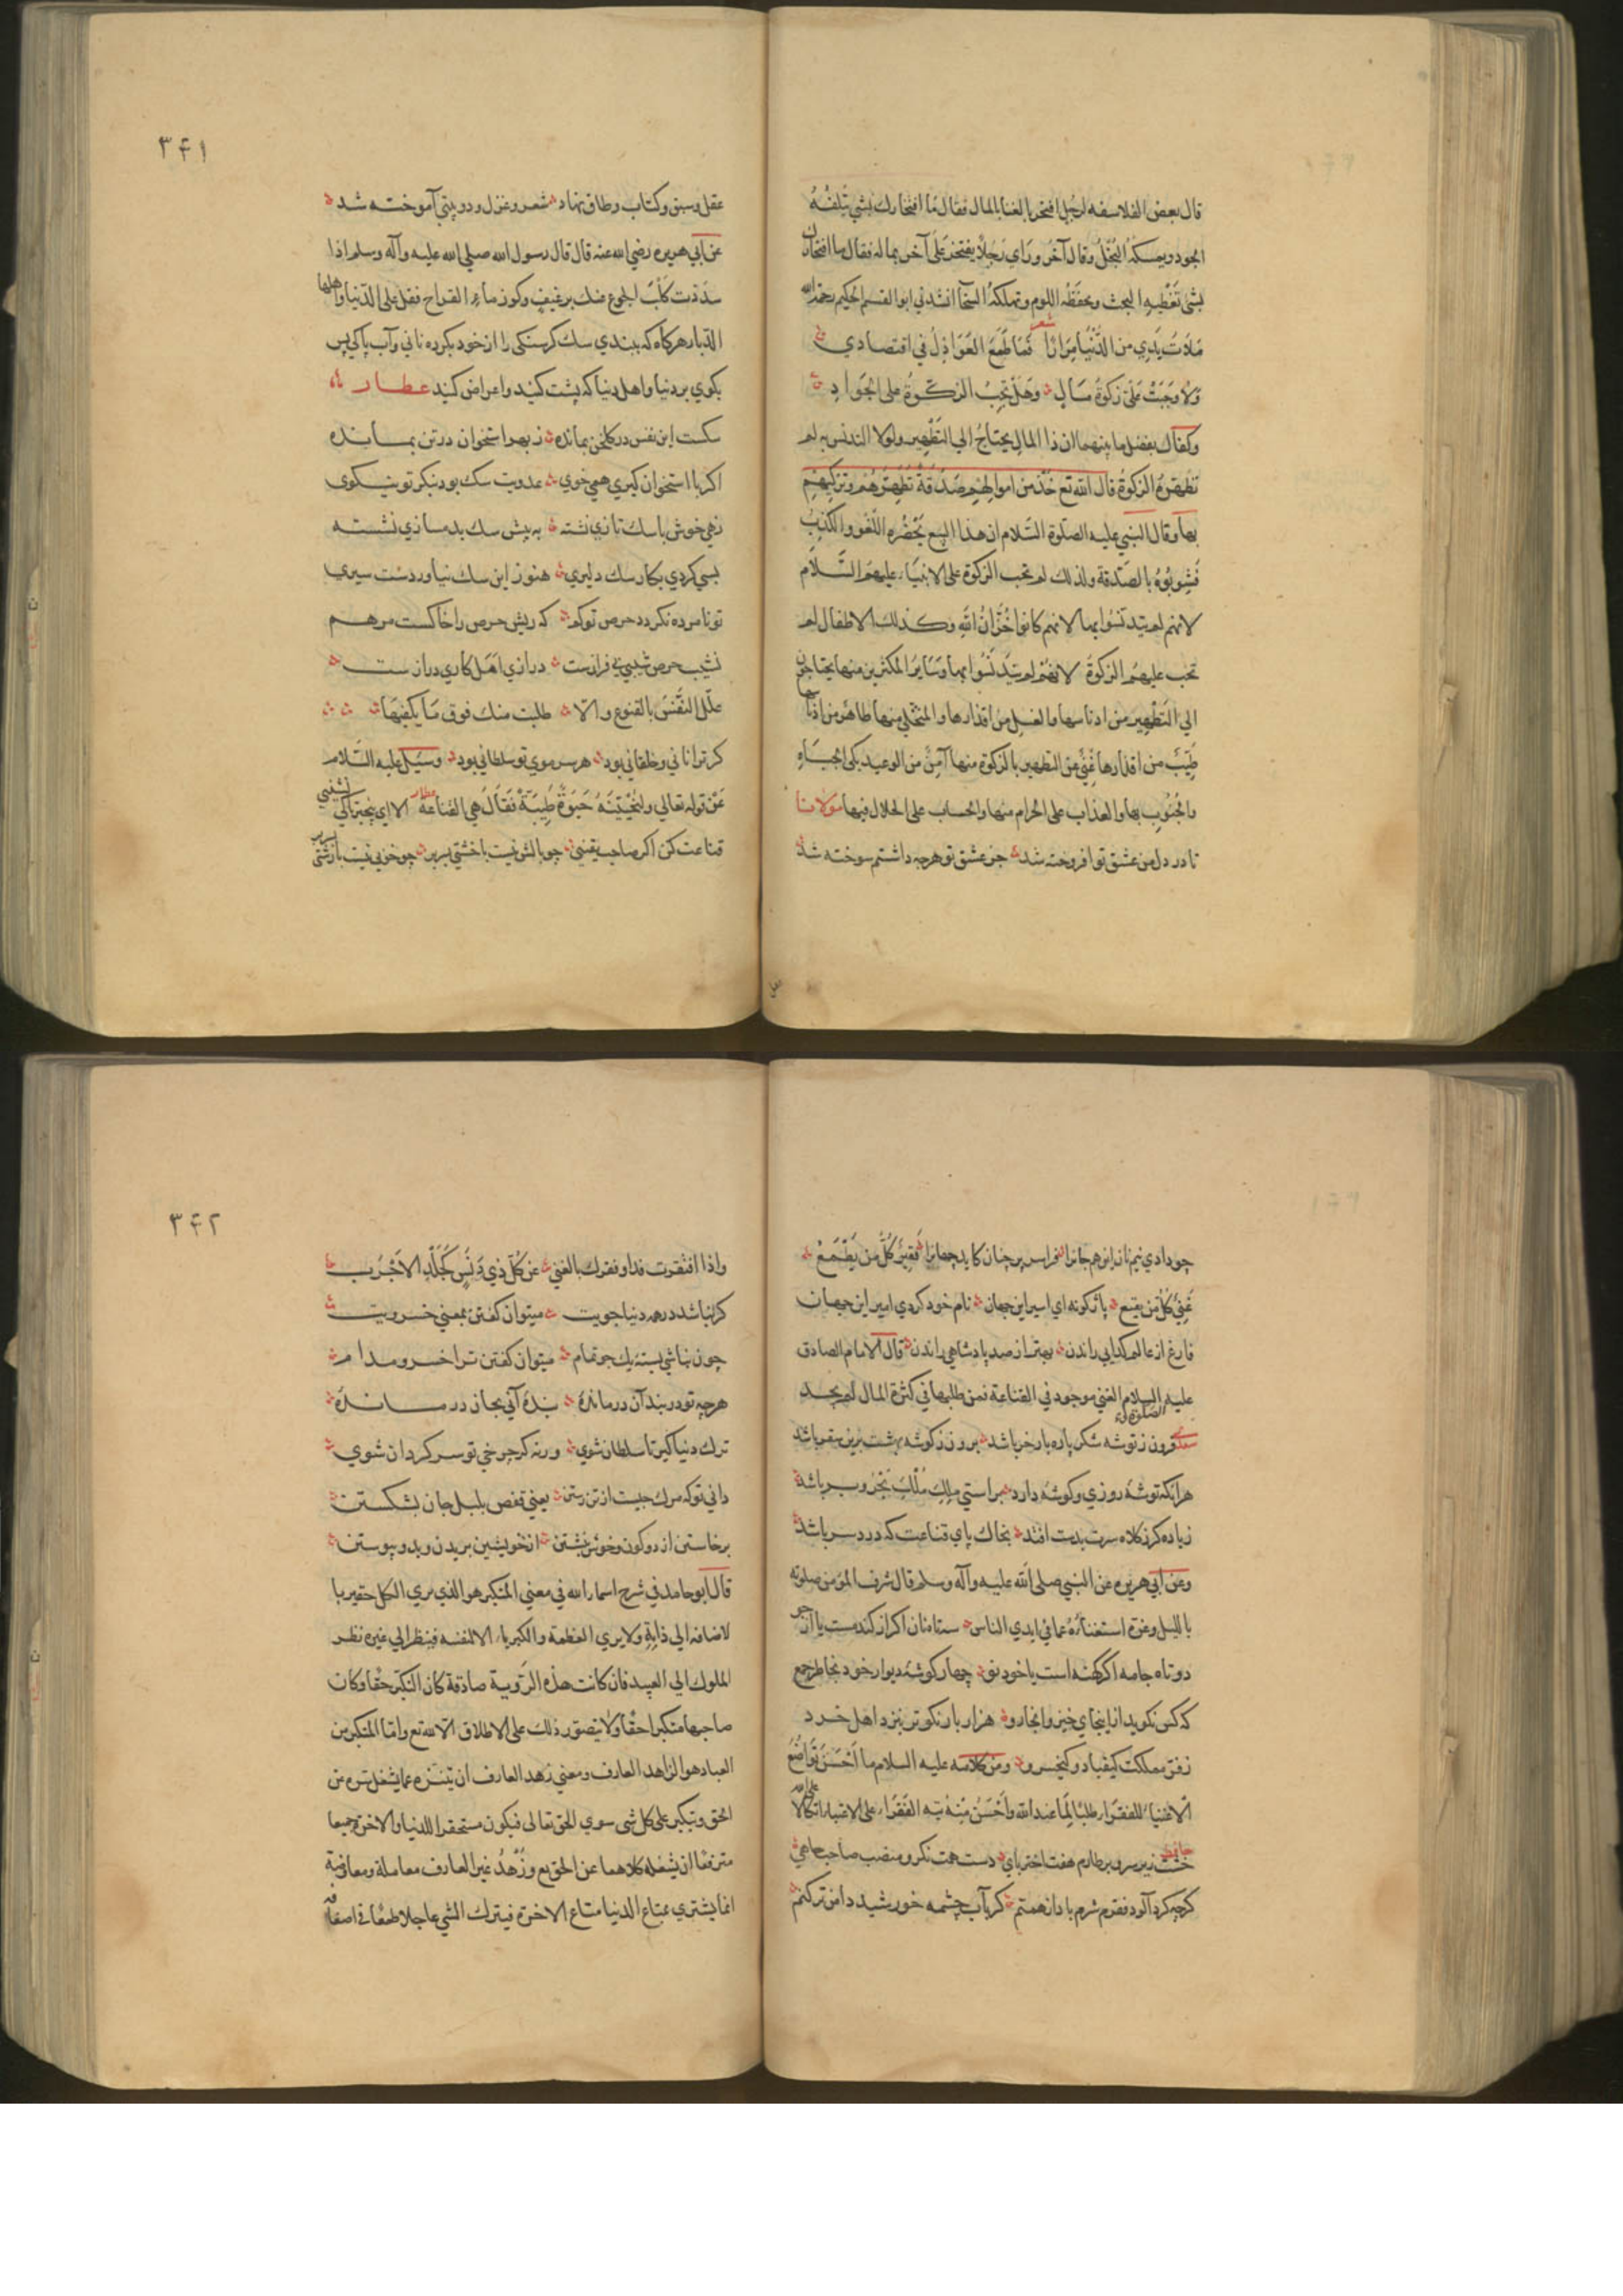 قال بعض الفلاسفه لرجل افتخر بالغنا بالمال فقال ما افتخارك بشي يتلفه
الجود ويمسكه البخل وقال آخر وراي رجلا يفتخر علي آخر بماله فقال ما افتخارك
بشي تعطيه البخت ويحفظه اللوم وتهلكه السخآ انشدني ابو القسم الحكيم رحمه الله
شعر
ملات يدي من الدنيا مرارا فما طمع العواذل في اقتصادي
ولا وجبت علي زكوة مال وهل تجب الزكوة علي الجواد
وكفاك بفضل ما بينهما ان ذا المال يحتاج الي التطهير ولولا التدنس به لم
تطهره الزكوة قال الله تع خذ من اموالهم صدقة تطهرهم وتزكيهم
بها وقال النبي عليه الصلوة السلام ان هذا البيع يحضره اللغو والكذب
فشوبوه بالصدقة ولذلك لم تجب الزكوة علي الانبياء عليهم السلام
لانهم لم يتدنسوا بها لانهم كانوا خزان الله وكذلك الاطفال لم
تجب عليهم الزكوة لانهم لم يتدنسوا بها وساير المكثرين منها يحتاجون
الي التطهير من ادناسها والغسل من اقذارها والمتخلي منها طاهر من
طيب من اقذارها غني عن التطهير بالزكوة منها آمن من الوعيد بكي الجباه
والجنوب بها والعذاب علي الحرام منها والحساب علي الحلال فيها مولانا
تا در دل من عشق تو افروخته شد جز عشق تو هرچه داشتم سوخته شد
۳۴۱
عقل و سبق و كتاب و طاق نهاد شعر و غزل و دو بيتي آموخته شد
عن ابي هريره رضي الله عنه قال قال رسول الله صلي الله عليه وآله وسلم اذا
سددت كلب الجوع عنك برغيف وكوز ماء القراح فقل علي الدنيا واهلها
الدبار هركاه كه ببندي سك كرسنكي را از خود بكرده ناني و آب پاكي پس
بكوي بر دنيا و اهل دنيا كه پشت كنيد و اعراض كنيد عطار
سكست اين نفس در كلخن بمانده ز بهر استخوان در تن بمانده
اكر با استخوان كيري همي خوي عدويت سك بود بنكر تو نيكوي
زهي خوش با سك تازي نشسته به پيش سك بدمسازي نشسته
بسي كردي بكار سك دليري هنوز اين سك نياوردست سيري
تو تا مرده نكردد حرص تو كم كه ريش حرص را خاكست مرهم
نشيب حرص شيبي بي فرازست درازي امل كاري درازست
علل النفس بالقنوع والا طلبت منك فوق ما يكفيها
كر ترا ناني و خلقاني بود هر سر موي تو سلطاني بود وسئل عليه السلام
عن قوله تعالي ولنحيينه حيوة طيبة فقال هي القناعة عطار الا اي
قناعت كن اكر صاحب يقيني چو بالش نيست با خشتي بسر بر چو خز بي نيست با

چو دادي نيم نان اين هم جانرا فرا سر بر چنان كايد جهانرا فقير كل من يطمع
غني كل من يقنع باژكونه اي اسير اين جهان نام خود كردي امير اين جهان
فارغ از عالم كدايي راندن بهتر از صد پادشاهي راندن قال الامام الصادق
عليه السلام الغني موجود في القناعة فمن طلبها في كثرة المال لم يجد
سعدي فزون ز توشه شكر پاره بار خر باشد برون ز كوشه بهشت برين سقر باشد
هر آنكه توشهٔ روزي و كوشهٔ دارد براستي ملك ملك بحر و بر باشد
زياده كر ز كلاه سرت بدست افتد بخاك پاي قناعت كه درد سر باشد
وعن ابي هريره عن النبي صلي الله عليه وآله وسلم قال شرف المؤمن صلوته
بالليل وعزه استغناؤه عما في ايدي الناس ستا نان اكر از كندمست يا از جو
دو تاه جامه اكر كهنه است يا خود نو چهار كوشهٔ ديوار خود بخاطر جمع
كه كس نكويد از اينجاي خيز و انجا رو هزار بار نكوتر بنزد اهل خرد
ز فر مملكت كيقباد و كيخسرو ومن كلامه عليه السلام ما احسن تواضع
الاغنياء للفقراء طلبا لما عند الله واحسن منه تيه الفقراء علي الاغنياء اتكالا علي الله
حافظ خشت زير سر و بر طارم هفت اختر پاي دست همت نكر و منصب صاحب جاهي
كرچه كرد آلود فقرم شرم باد از همتم كر بآب چشمه خورشيد دامن تر كنم
۳۴۲
واذا افتقرت فداو فقرك بالغني عن كل ذي دنس كجلد الاجرب
كر نباشد در همه دنيا جويت ميتوان كفتن بمعني خسرويت
چون نباشي بستهٔ يك جو تمام ميتوان كفتن ترا خسرو مدام
هرچه تو در بند آن درماندهٔ بندهٔ آني بجان درماندهٔ
ترك دنيا كير تا سلطان شوي ورنه كر چرخي تو سركردان شوي
داني تو كه مرك چيست از تن رستن يعني قفص بلبل جان بشكستن
برخاستن از دو كون و خوش بنشستن از خويشتن بريدن و بدو پيوستن
قال ابو حامد في شرح اسماء الله في معني المتكبر هو الذي يري الكل حقيرا با
لاضافه الي ذاته ولا يري العظمة والكبرياء الا لنفسه فينظر الي غيره نظر
الملوك الي العبيد فان كانت هذه الروية صادقة كان التكبر حقا وكان
صاحبها متكبرا حقا ولا يتصور ذلك علي الاطلاق الا لله تع واما المتكبر من
العباد هو الزاهد العارف ومعني زهد العارف ان يتنزه عما يشغل سره عن
الحق ويتكبر علي كل شي سوي الحق تعالي فيكون مستحقرا للدنيا والاخرة جميعا
مترفعا ان يشغله كلاهما عن الحق تع وزهد غير العارف معاملة ومعاوضة
انما يشتري بمتاع الدنيا متاع الاخرة فيترك الشي عاجلا طمعا في اضعافه